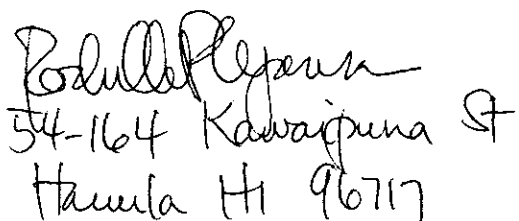 54-164 Kawaipuna St
Hauula HI 96717